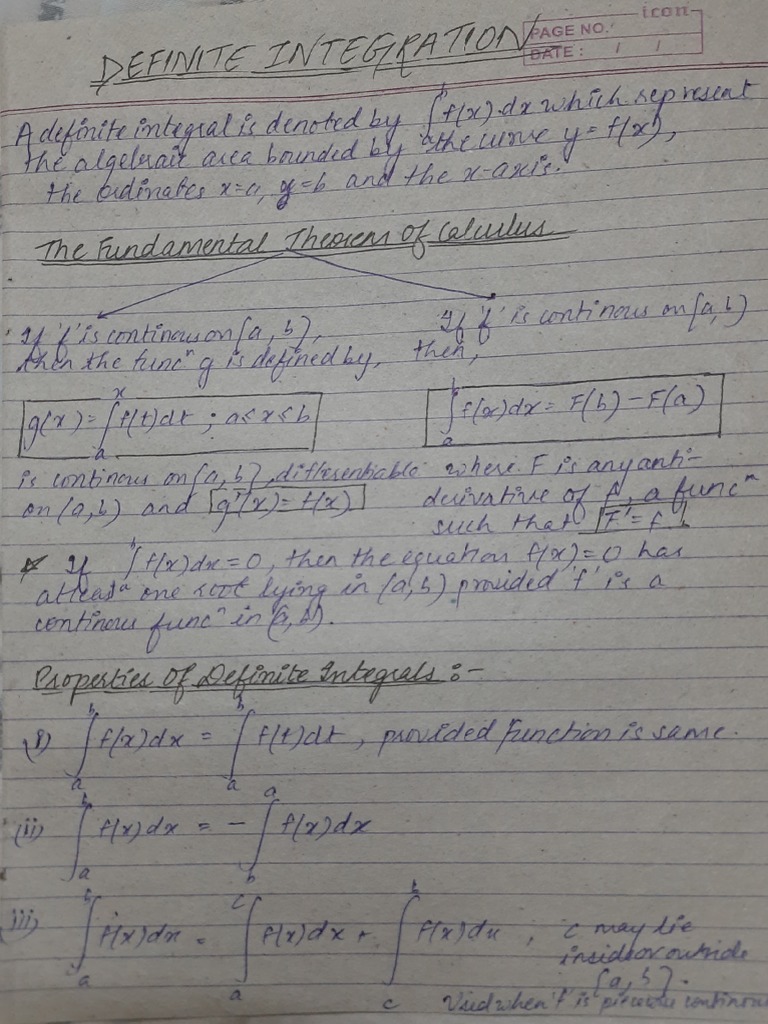 icon
PAGE NO.:
DATE : / /
DEFINITE INTEGRATION
A definite integral is denoted by ∫ₐᵇ f(x).dx which represent
the algebraic area bounded by the curve y = f(x),
the ordinates x=a, x=b and the x-axis.
The Fundamental Theorem of Calculus
If 'f' is continous on [a, b],
then the funcⁿ g is defined by,
g(x) = ∫ₐˣ f(t)dt ; a≤x≤b
is continous on [a, b], differentiable
on (a, b) and g'(x) = f(x)
If 'f' is continous on [a, b]
then,
∫ₐᵇ f(x)dx = F(b) - F(a)
where F is any anti-
derivative of f, a funcⁿ
such that F' = f.
* If ∫ₐᵇ f(x)dx = 0, then the equation f(x) = 0 has
atleast one root lying in (a, b) provided 'f' is a
continous funcⁿ in (a, b).
Properties Of Definite Integrals :-
(i) ∫ₐᵇ f(x)dx = ∫ₐᵇ f(t)dt, provided function is same.
(ii) ∫ₐᵇ f(x)dx = - ∫_b^a f(x)dx
(iii) ∫ₐᵇ f(x)dx = ∫_a^c f(x)dx + ∫_c^b f(x)dx, c may lie
inside or outside
[a, b].
Used when 'f' is piecewise continous